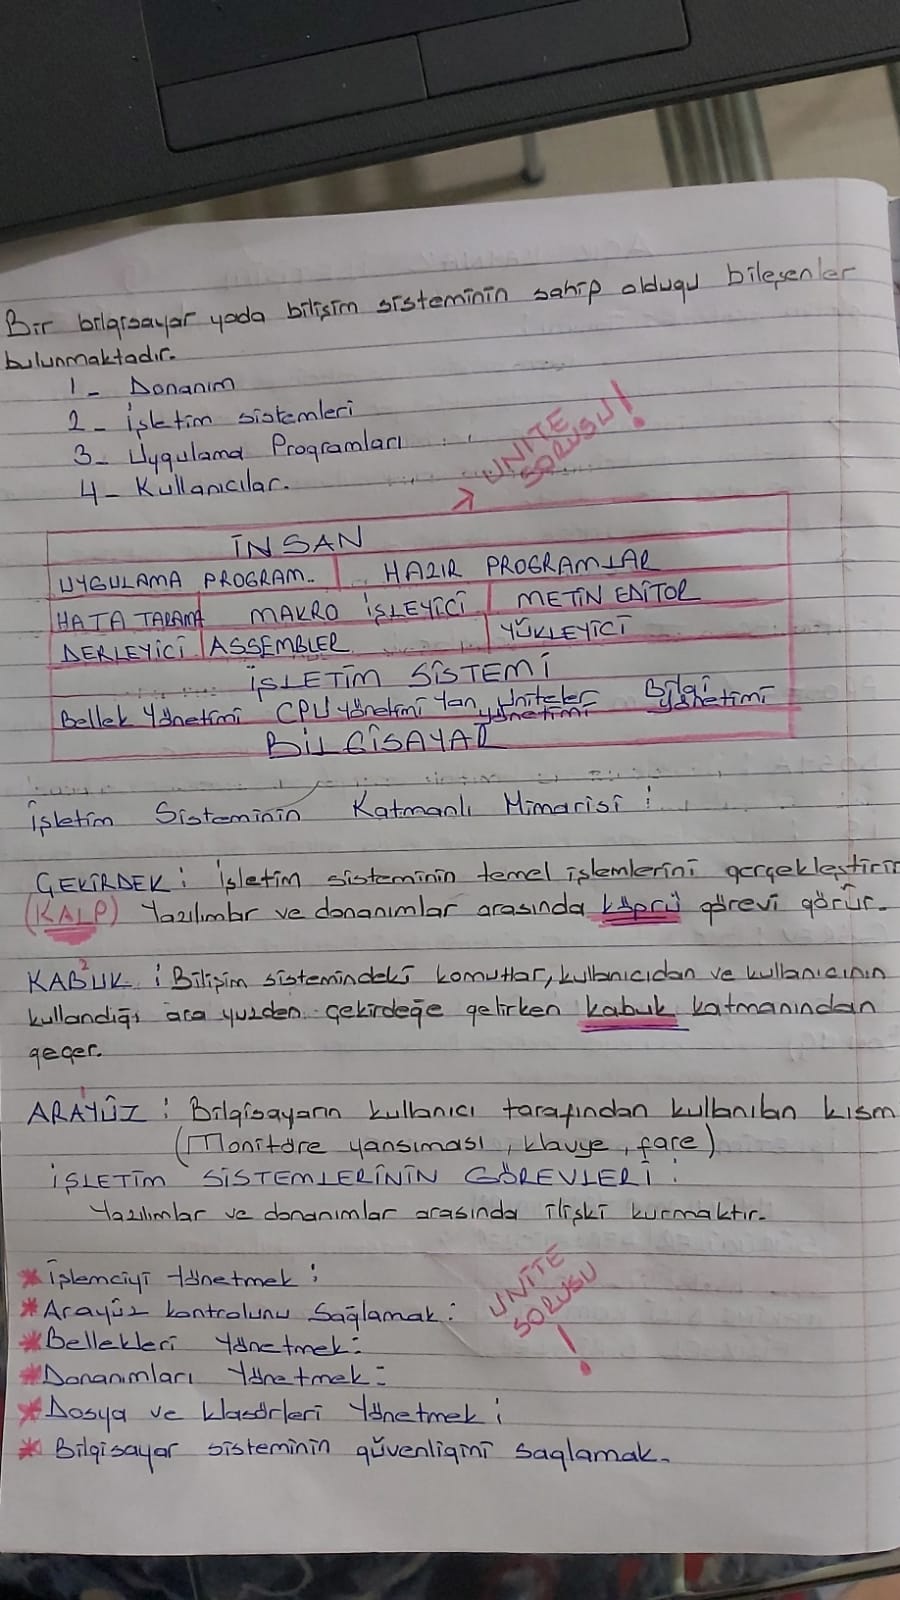 Bir bilgisayar yada bilişim sisteminin sahip olduğu bileşenler
bulunmaktadır.
1- Donanım
2- İşletim sistemleri
3- Uygulama Programları
4- Kullanıcılar.
ÜNİTE
SORUSU!
İNSAN
UYGULAMA PROGRAM.. HAZIR PROGRAMLAR
HATA TARAMA MAKRO İŞLEYİCİ METİN EDİTOR
DERLEYİCİ ASSEMBLER YÜKLEYİCİ
İŞLETİM SİSTEMİ
Bellek Yönetimi CPU Yönetimi Yan üniteler yönetimi Bilgi yönetimi
BİLGİSAYAR
İşletim Sisteminin Katmanlı Mimarisi :
ÇEKİRDEK : İşletim sisteminin temel işlemlerini gerçekleştirir
(KALP) Yazılımlar ve donanımlar arasında köprü görevi görür.
2
KABUK : Bilişim sistemindeki komutlar, kullanıcıdan ve kullanıcının
kullandığı ara yuzden çekirdeğe gelirken kabuk katmanından
geçer.
1
ARAYÜZ : Bilgisayarın kullanıcı tarafından kullanılan kısm
(Monitöre yansıması, klavye, fare)
İŞLETİM SİSTEMLERİNİN GÖREVLERİ :
Yazılımlar ve donanımlar arasında ilişki kurmaktır.
* İşlemciyi Yönetmek :
* Arayüz kontrolunu Sağlamak :
* Bellekleri Yönetmek :
* Donanımları Yönetmek :
* Dosya ve klasörleri Yönetmek :
* Bilgisayar sisteminin güvenliğini sağlamak.
ÜNİTE
SORUSU
!